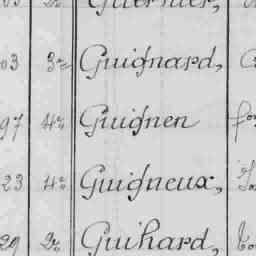 Guernier,
03 3e Guignard,
97 4e Guignen
23 4e Guigneux,
29 2e Guihard,